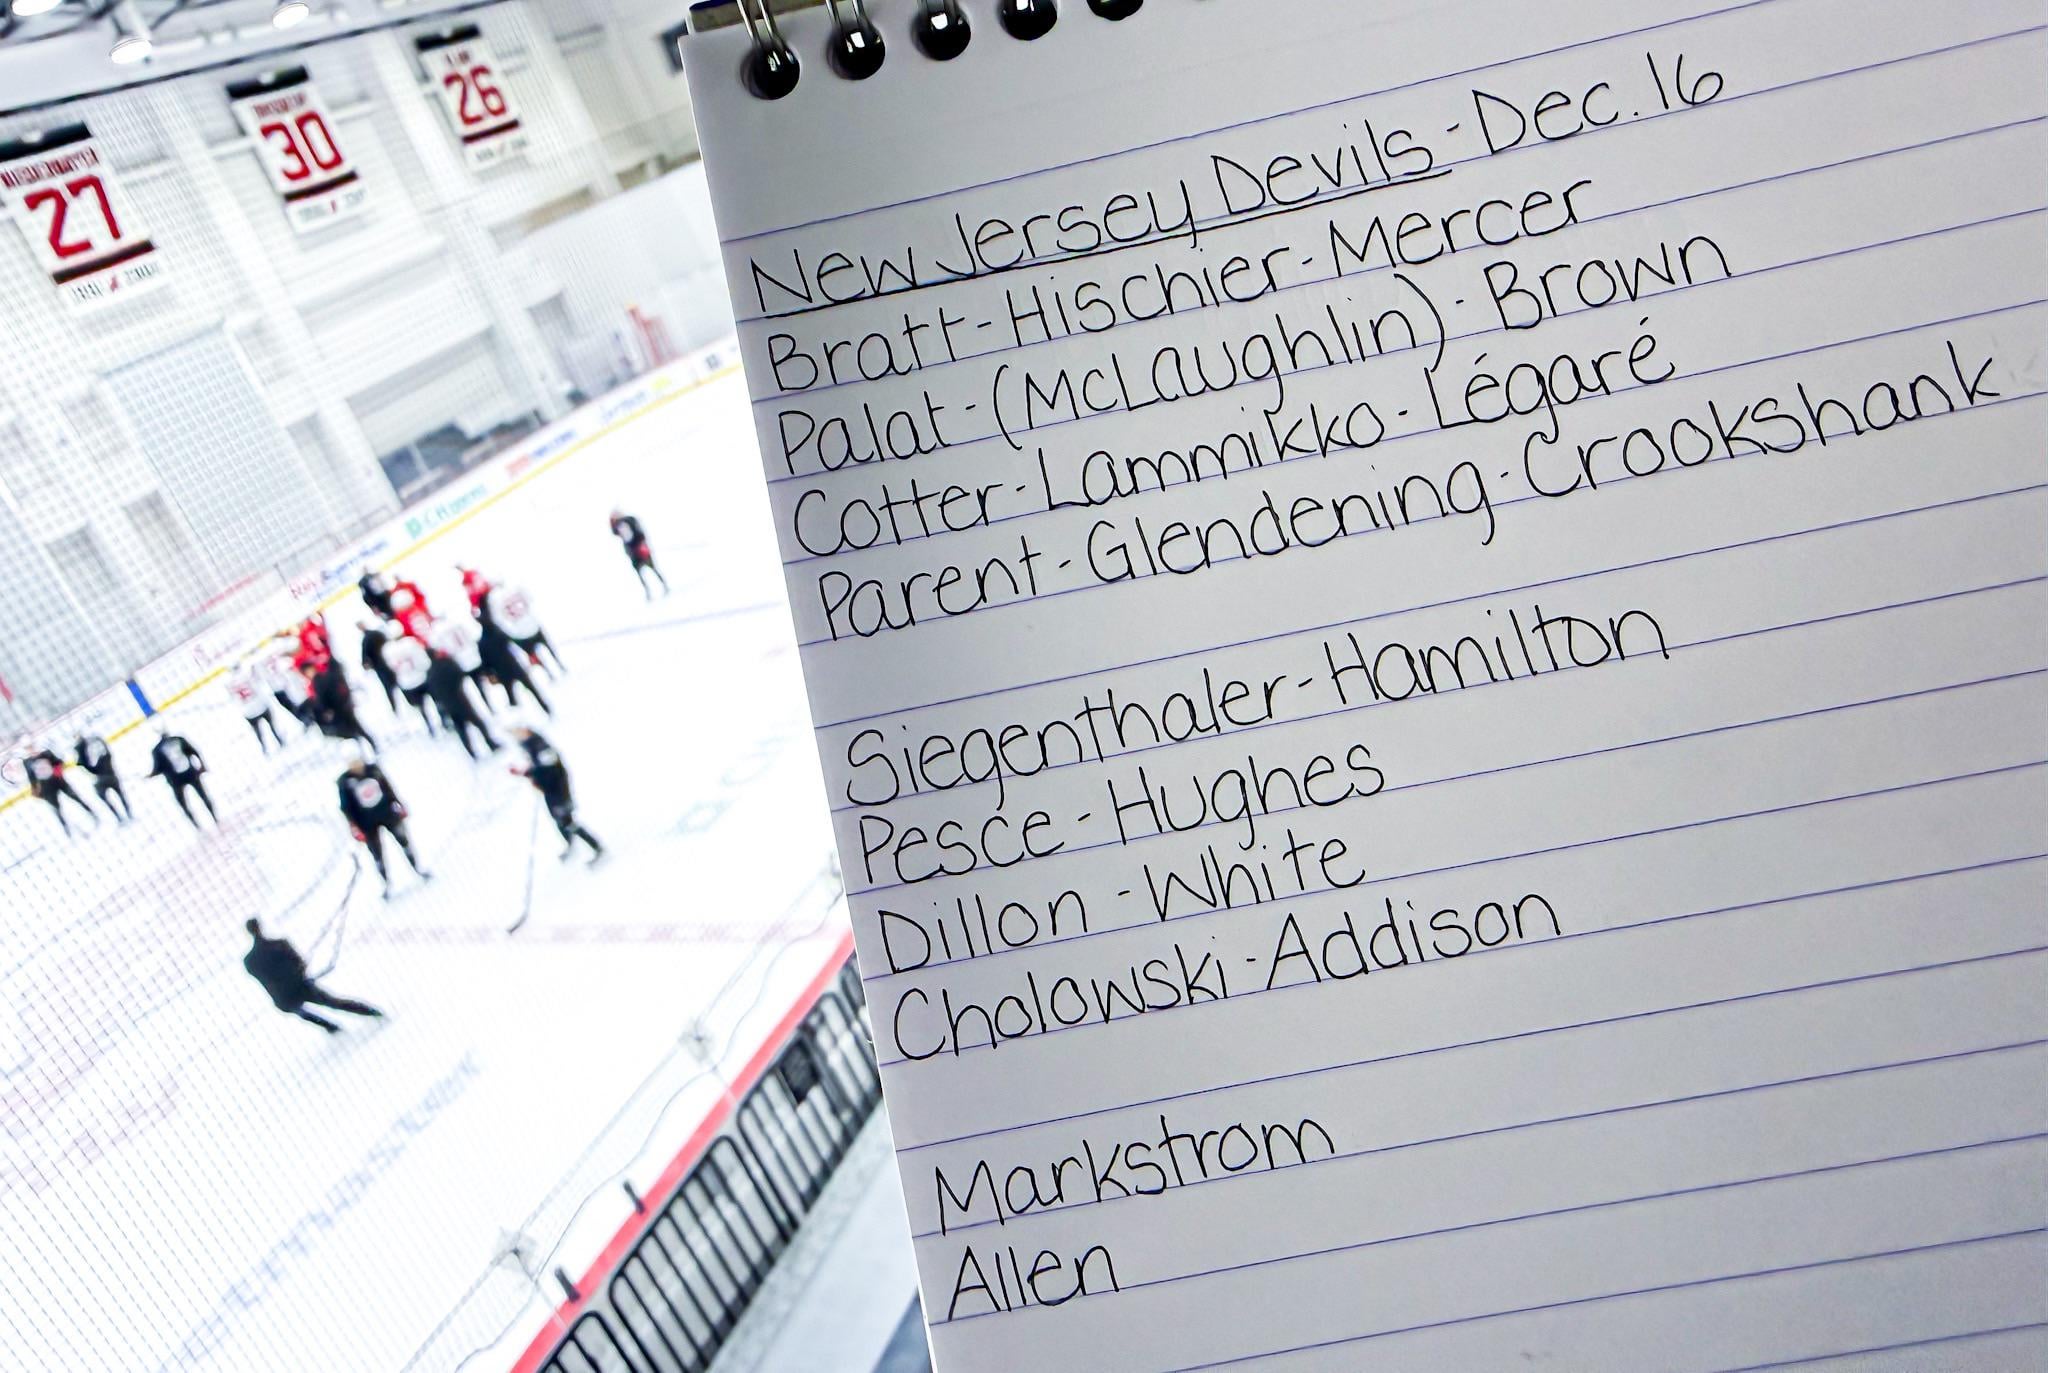 27
30
26
New Jersey Devils - Dec. 16
Bratt - Hischier - Mercer
Palat - (McLaughlin) - Brown
Cotter - Lammikko - Légaré
Parent - Glendening - Crookshank
Siegenthaler - Hamilton
Pesce - Hughes
Dillon - White
Cholowski - Addison
Markstrom
Allen